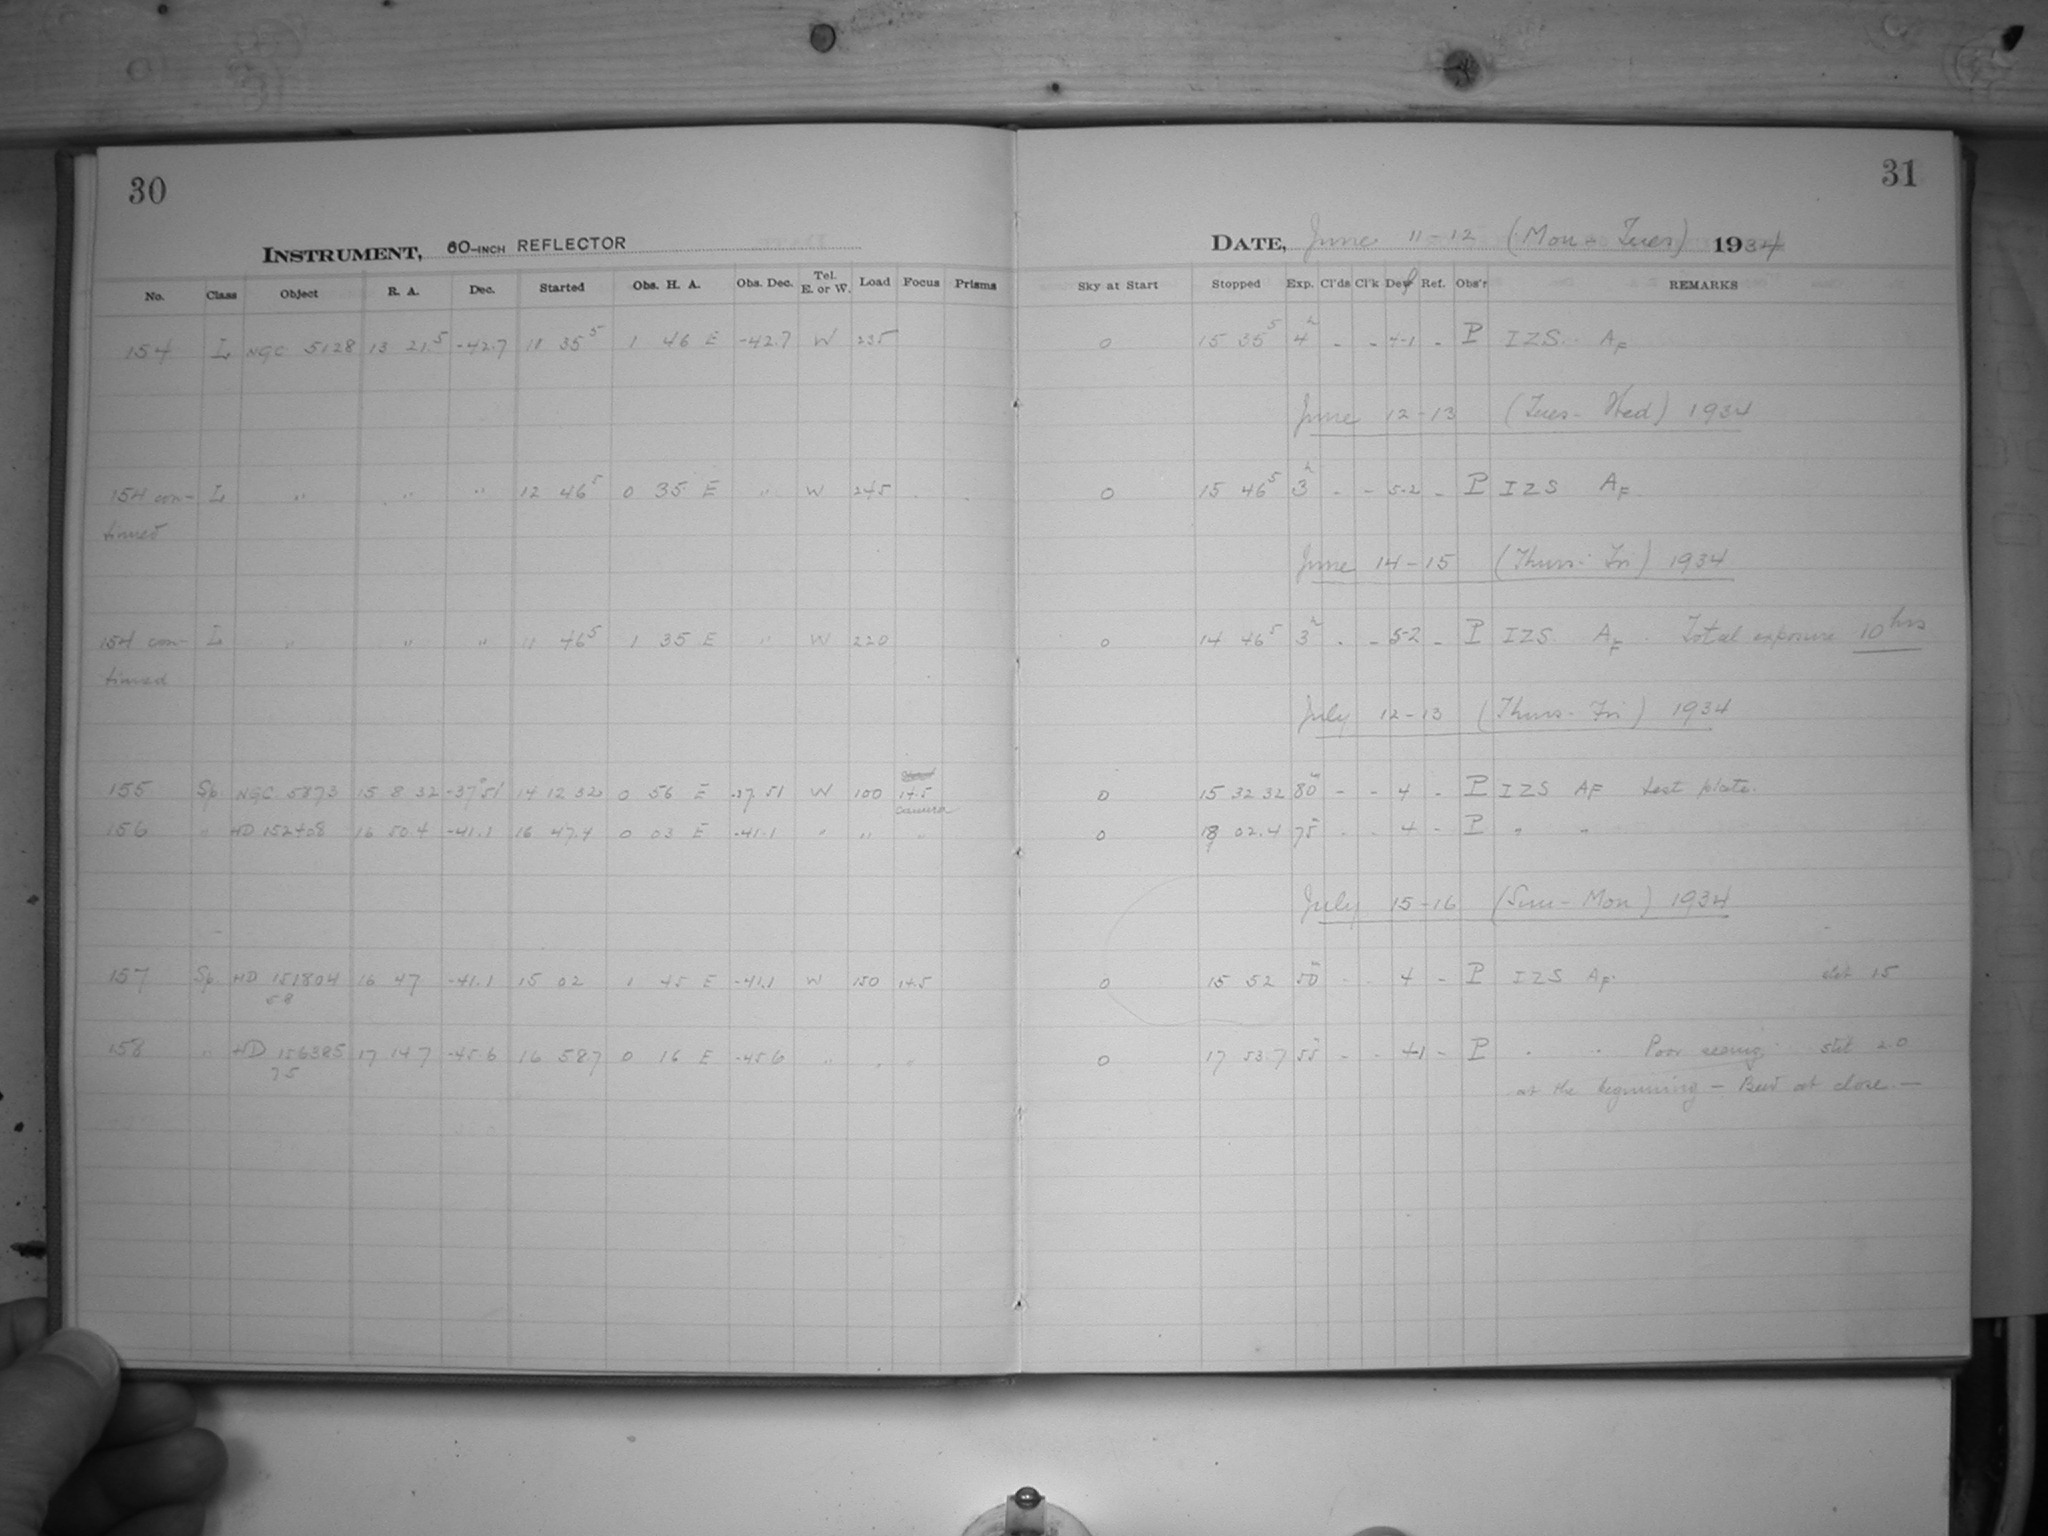 30
31
INSTRUMENT, 60-INCH REFLECTOR
DATE, June 11-12 (Mon-Tues) 1934
No. Class Object R. A. Dec. Started Obs. H. A. Obs. Dec. Tel. E. or W. Load Focus Prisms Sky at Start Stopped Exp. Cl'ds Cl'k Def Ref. Obs'r REMARKS
154 L NGC 5128 13 21.5 -42.7 11 35⁵ 1 46 E -42.7 W 235 0 15 35⁵ 4ʰ - - 4-1 - P IZS. AF
June 12-13 (Tues-Wed) 1934
154 con- L " " " 12 46⁵ 0 35 E " W 245 0 15 46⁵ 3ʰ - - 5-2 - P IZS AF
tinued
June 14-15 (Thurs-Fri) 1934
154 con- L " " " 11 46⁵ 1 35 E " W 220 0 14 46⁵ 3ʰ - - 5-2 - P IZS. AF. Total exposure 10 hrs
tinued
July 12-13 (Thurs-Fri) 1934
155 Sp. NGC 5873 15 8 32 -37°51' 14 12 32 0 56 E -37 51 W 100 14.5 0 15 32 32 80ᵐ - - 4 - P IZS AF test plate.
camera
156 " HD 152408 16 50.4 -41.1 16 47.4 0 03 E -41.1 " " " 0 18 02.4 75ᵐ - - 4 - P " "
July 15-16 (Sun-Mon) 1934
157 Sp. HD 151804 16 47 -41.1 15 02 1 45 E -41.1 W 150 14.5 0 15 52 50ᵐ - - 4 - P IZS AF. slit 15
58
158 " HD 156385 17 14 7 -45.6 16 58 7 0 16 E -45.6 " " " 0 17 53.7 55ᵐ - - 4-1 - P " " Poor seeing, slit 2.0
75
at the beginning - Best at close. -